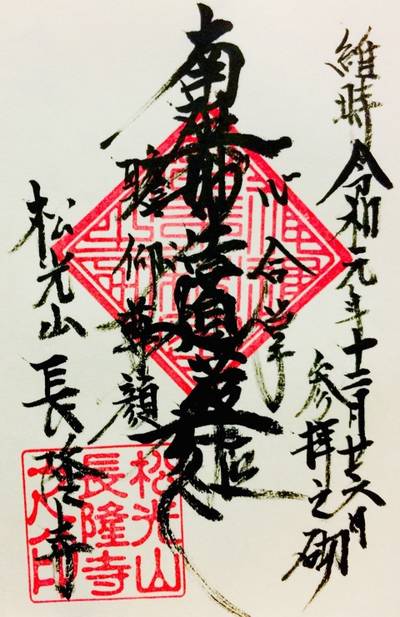 維時令和元年十二月廿六日
参拝之砌
一心合掌
南無妙法蓮華経
瞻仰尊顔
松光山 長隆寺
松光山
長隆寺